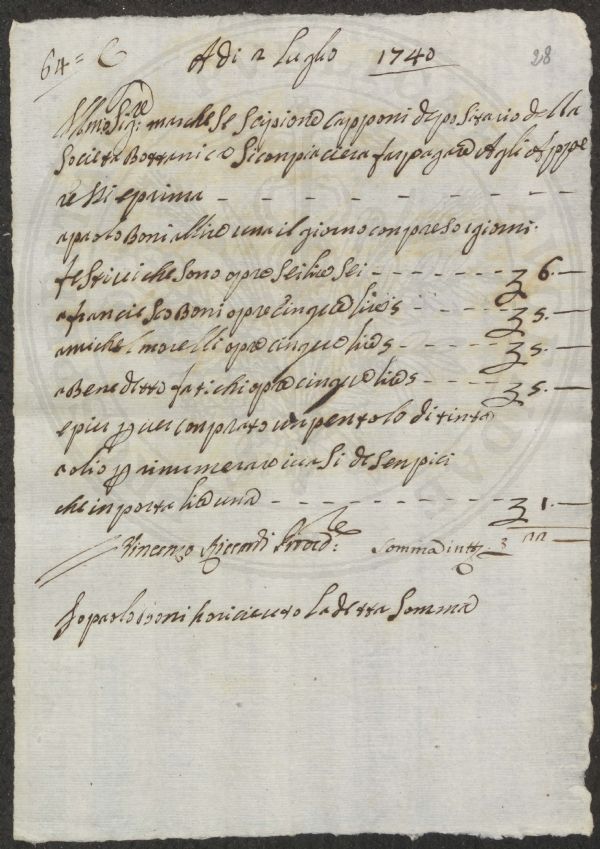 64 = C A di 2 Luglio 1740 28
Ill.mo Sig.re marchese Scipione Capponi depositario della
Societa Bottanica si conpiacera far pagare agli appre
re Ni e prima
a paolo Boni a lire una il giorno conpreso i giorni
festivi che sono opre sei lire sei 6.—
a francesco Boni opre cinque lire 5 5.—
a michel morelli opre cinque lire 5 5.—
a Benedetto fatichi opre cinque lire 5 5.—
e piu per aver conprato un pentolo di tinta
a olio per rinumerare i vasi de senpici
che inporta lire una 1.—
Vincenzo Riccardi somma in tt.o 22 —
Io paolo Boni ho riceuto la detta somma